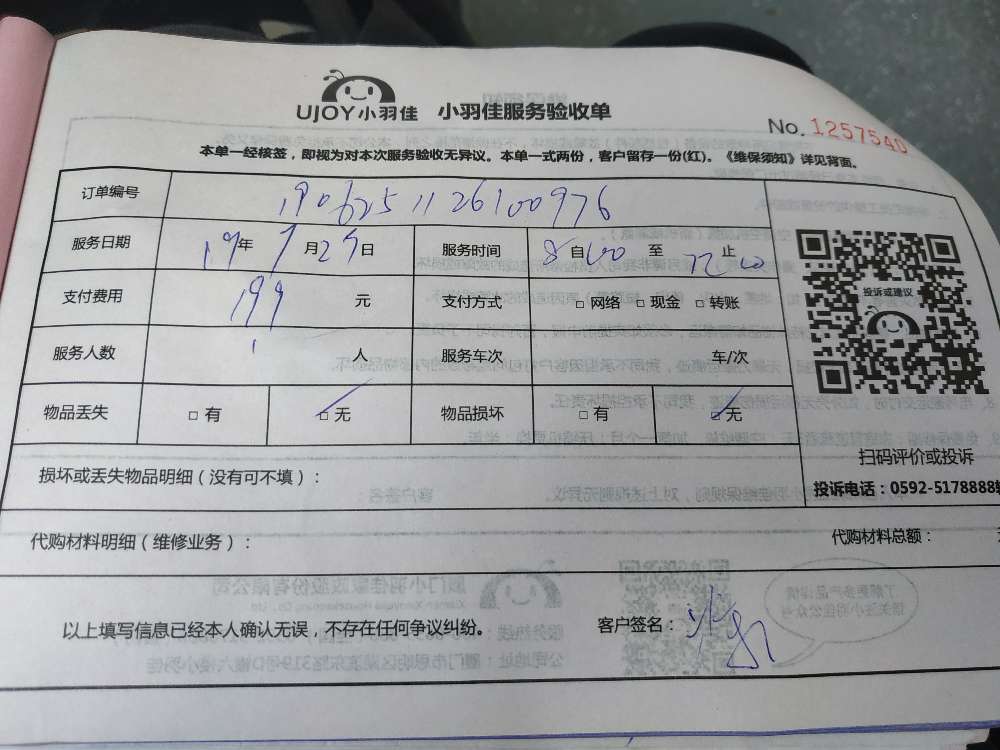 UJOY小羽佳 小羽佳服务验收单
No. 1257540
本单一经核签，即视为对本次服务验收无异议。本单一式两份，客户留存一份(红)。《维保须知》详见背面。
订单编号 1906251126100976
服务日期 19年 7月29日 服务时间 8自00 至 12止00
投诉或建议
支付费用 199 元 支付方式 □ 网络 □ 现金 □ 转账
服务人数 1 人 服务车次 车/次
物品丢失 □ 有 ☑ 无 物品损坏 □ 有 ☑ 无
扫码评价或投诉
投诉电话：0592-5178888
损坏或丢失物品明细（没有可不填）：
代购材料明细（维修业务）：
代购材料总额：
以上填写信息已经本人确认无误，不存在任何争议纠纷。 客户签名：